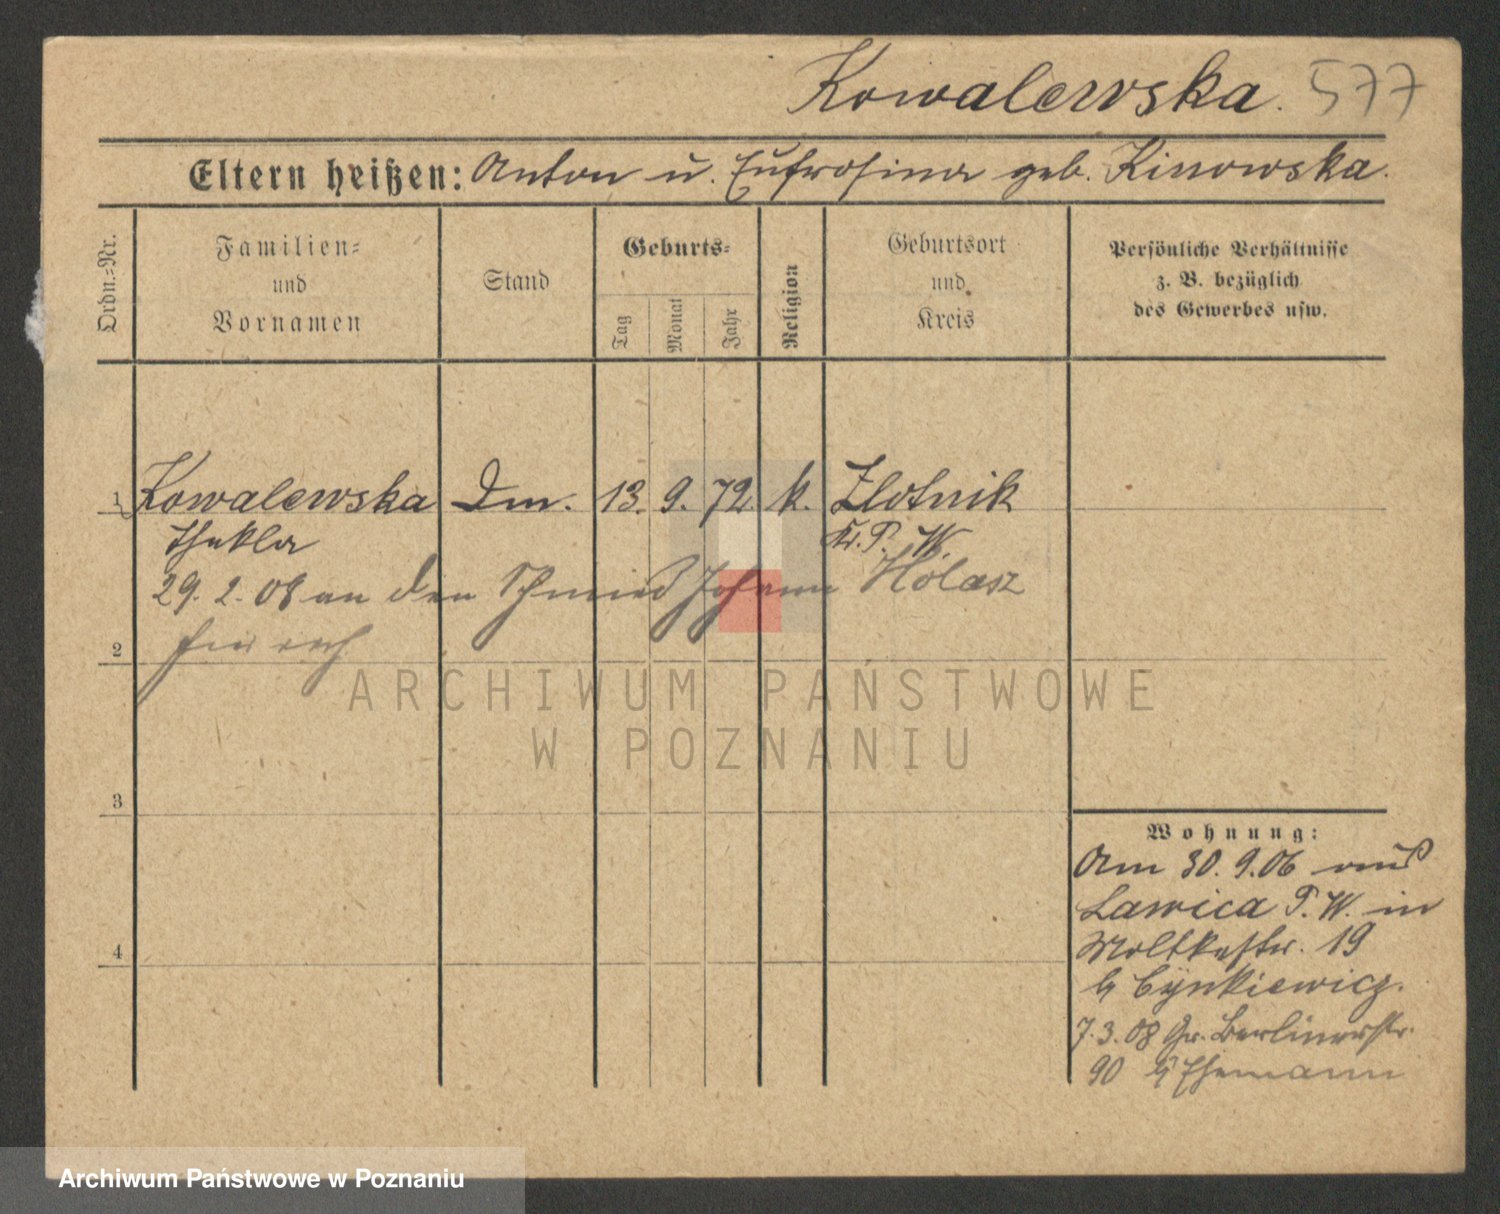 Kowalewska. 577
Eltern heißen: Anton u. Eufrosina geb. Kinowska.
Ordn.=Nr.
Familien=
und
Vornamen
Stand
Geburts=
Tag
Monat
Jahr
Religion
Geburtsort
und
Kreis
Persönliche Verhältnisse
z. B. bezüglich
des Gewerbes usw.
1 Kowalewska Dm. 13. 9. 72. k. Zlotnik
Thekla Kr. P. W.
29. 2. 08 an den Schmied Johann Holasz
2
3
4
Wohnung:
Am 30. 9. 06 aus
Lawica P. W. in
Moltkestr. 19
b/ Cynkiewicz.
7. 3. 08 Gr. Berlinerstr.
90 b/ Ehemann
ARCHIWUM PAŃSTWOWE
W POZNANIU
Archiwum Państwowe w Poznaniu